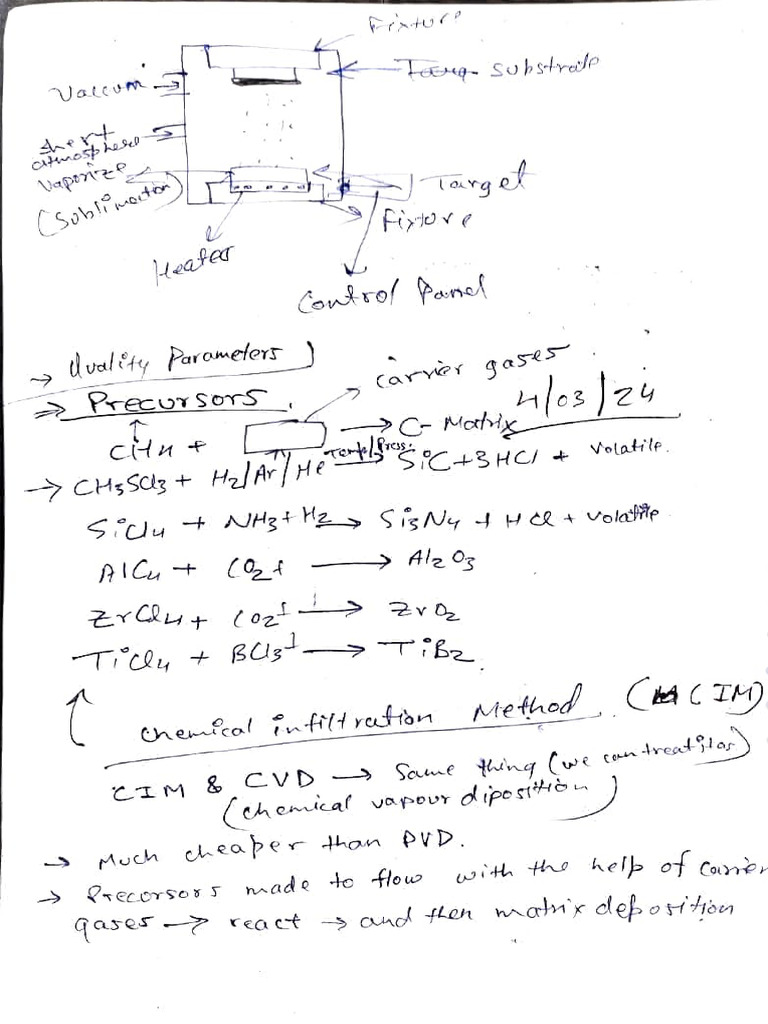 Fixture
Vaccum
Targ substrate
Inert
atmosphere
Vaporize
(Sublimation)
Target
Fixture
Heater
Control Pannel
→ Quality Parameters
⇒ Precursors.
carrier gases
4/03/24
CH4 + → C-Matrix
→ CH3SCl3 + H2/Ar/He Temp/Press. → SiC+3HCl + volatile.
SiCl4 + NH3+H2 → Si3N4 + HCl + volatile
AlCl4 + CO2+ → Al2O3
ZrCl4 + CO2+ → ZrO2
TiCl4 + BCl3+ → TiB2.
Chemical infiltration Method. (CIM)
CIM & CVD → Same thing (we can treat it as)
(chemical vapour diposition)
→ Much cheaper than PVD.
→ Precorsors made to flow with the help of carrier
gases → react → and then matrix deposition